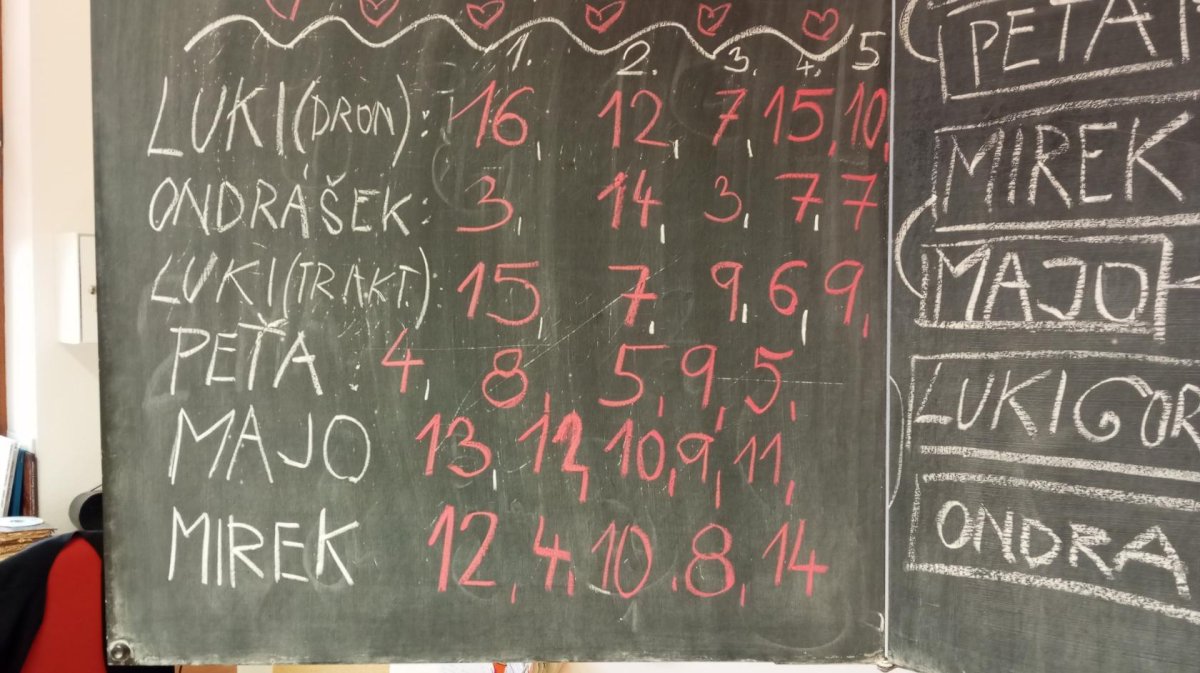 1. 2. 3. 4. 5
LUKI (DRON): 16, 12, 7, 15, 10,
ONDRÁŠEK: 3, 14, 3, 7, 7
LUKI (TRAKT.): 15, 7, 9, 6, 9,
PEŤA: 4, 8, 5, 9, 5,
MAJO 13, 12, 10, 9, 11,
MIREK 12, 4, 10, 8, 14
PEŤA
MIREK
MAJO
LUKIGOR
ONDRA